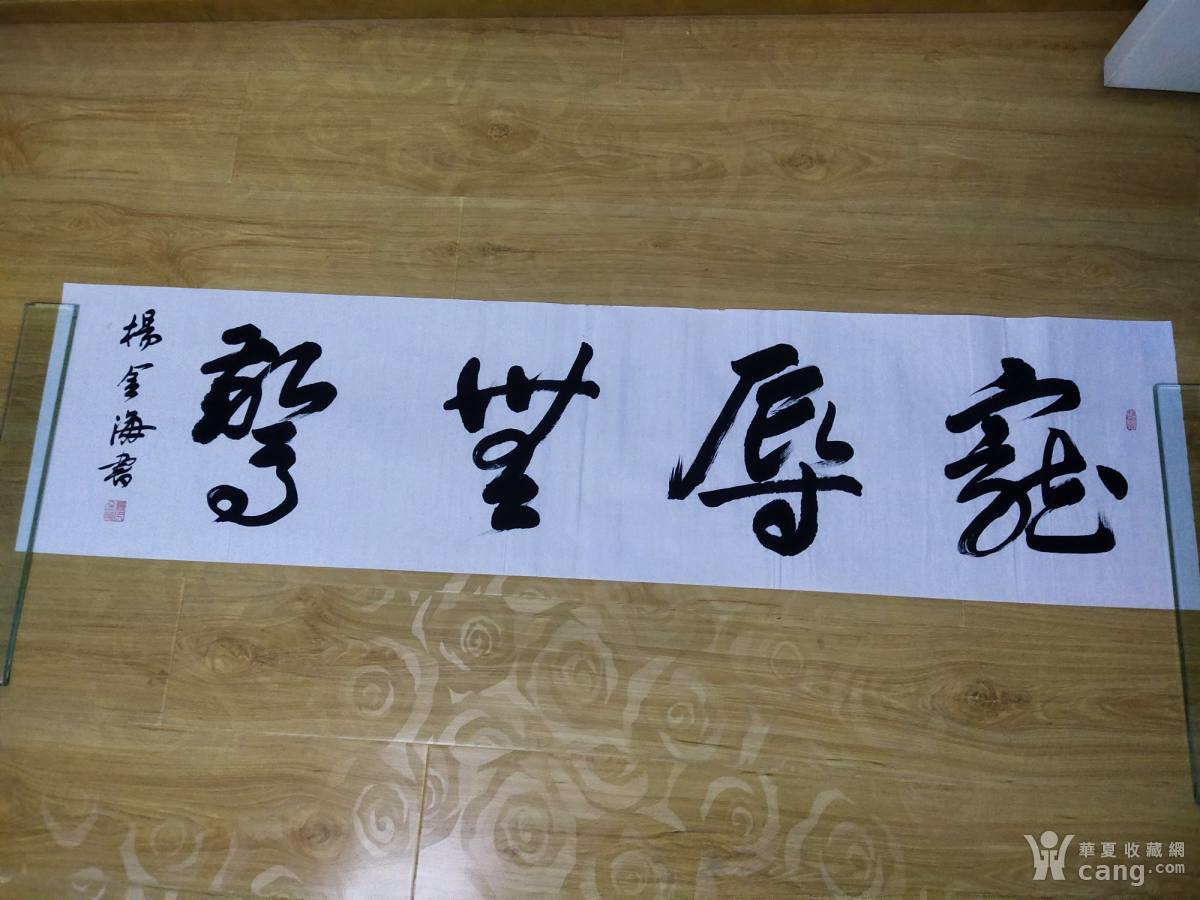 寵辱無驚
楊金海書
華夏收藏網
cang.com